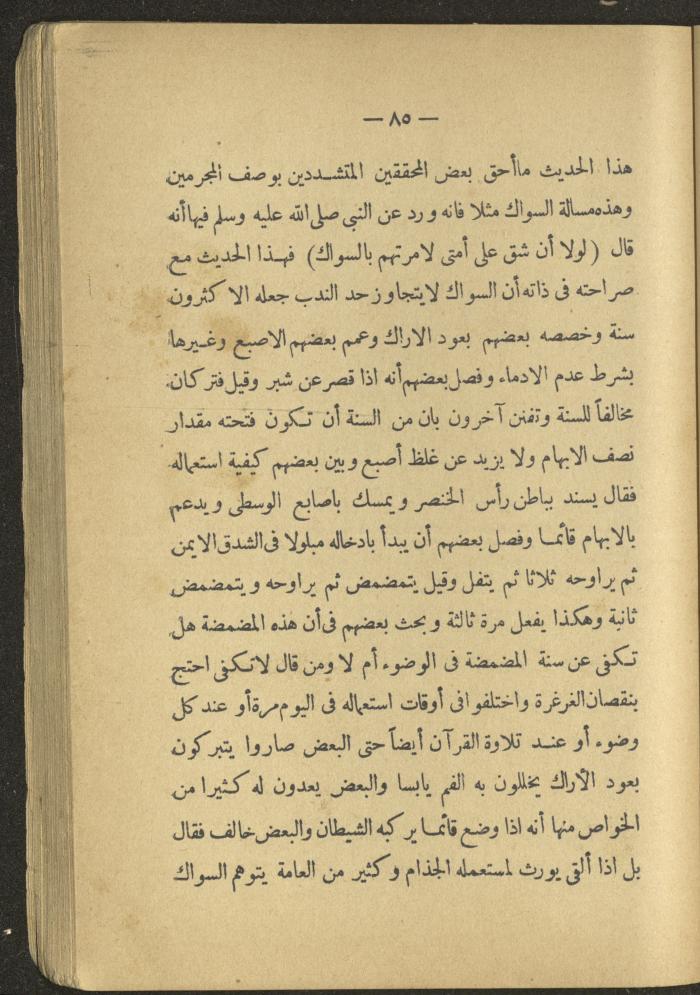 — ٨٥ —
هذا الحديث ماأحق بعض المحققين المتشددين بوصف المجرمين
وهذه مسالة السواك مثلا فانه ورد عن النبي صلى الله عليه وسلم فيها أنه
قال (لولا أن شق على أمتى لامرتهم بالسواك) فهذا الحديث مع
صراحته فى ذاته أن السواك لا يتجاوز حد الندب جعله الاكثرون
سنة وخصصه بعضهم بعود الاراك وعمم بعضهم الاصبع وغيرها
بشرط عدم الادماء وفصل بعضهم أنه اذا قصر عن شبر وقيل فتر كان
مخالفاً للسنة وتفنن آخرون بان من السنة أن تكون فتحته مقدار
نصف الابهام ولا يزيد عن غلظ أصبع وبين بعضهم كيفية استعماله
فقال يسند بباطن رأس الخنصر ويمسك باصابع الوسطى ويدعم
بالابهام قائما وفصل بعضهم أن يبدأ بادخاله مبلولا فى الشدق الايمن
ثم يراوحه ثلاثا ثم يتفل وقيل يتمضمض ثم يراوحه ويتمضمض
ثانية وهكذا يفعل مرة ثالثة وبحث بعضهم فى أن هذه المضمضة هل
تكفى عن سنة المضمضة فى الوضوء أم لا ومن قال لاتكفى احتج
بنقصان الغرغرة واختلفوا فى أوقات استعماله فى اليوم مرة أو عند كل
وضوء أو عند تلاوة القرآن أيضاً حتى البعض صاروا يتبركون
بعود الأراك يخللون به الفم يابسا والبعض يعدون له كثيرا من
الخواص منها أنه اذا وضع قائما يركبه الشيطان والبعض خالف فقال
بل اذا ألقى يورث لمستعمله الجذام وكثير من العامة يتوهم السواك